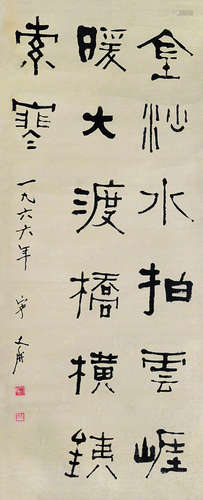 金沙水拍雲崕
暖大渡橋橫鐵
索寒
一九六六年 宁